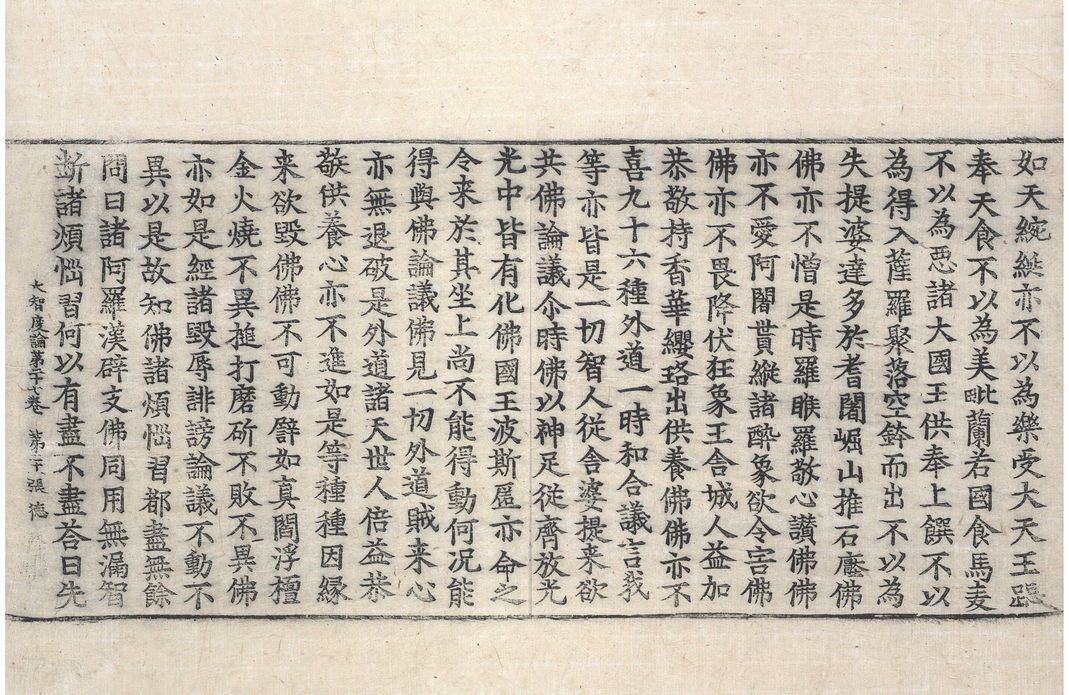 如天綩綖亦不以為樂受大天王跽
奉天食不以為美毗蘭若國食馬麦
不以為惡諸大國王供奉上饌不以
為得入薩羅聚落空鉢而出不以為
失提婆達多於耆闍崛山推石壓佛
佛亦不憎是時羅睺羅敬心讃佛佛
亦不愛阿闍貰縱諸醉象欲令害佛
佛亦不畏降伏狂象王舍城人益加
恭敬持香華纓珞出供養佛佛亦不
喜九十六種外道一時和合議言我
等亦皆是一切智人從舍婆提来欲
共佛論議尒時佛以神足從齊放光
光中皆有化佛國王波斯匿亦命之
令来於其坐上尚不能得動何况能
得與佛論議佛見一切外道賊来心
亦無退破是外道諸天世人倍益恭
敬供養心亦不進如是等種種因縁
来欲毀佛佛不可動譬如真閻浮檀
金火燒不異搥打磨斫不敗不異佛
亦如是經諸毀辱誹謗論議不動不
異以是故知佛諸煩惱習都盡無餘
問曰諸阿羅漢辟支佛同用無漏智
斷諸煩惱習何以有盡不盡荅曰先
大智度論第二十六卷 第二十張 德